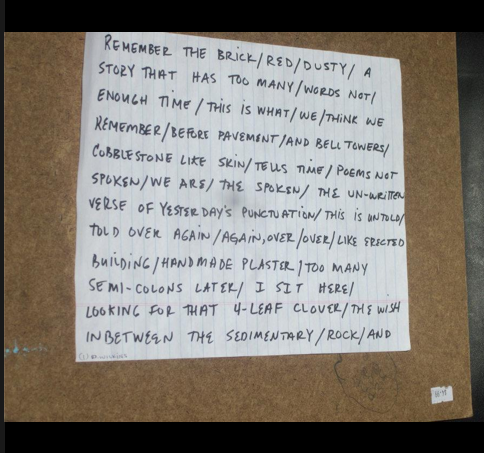 REMEMBER THE BRICK/RED/DUSTY/ A
STORY THAT HAS TOO MANY/WORDS NOT/
ENOUGH TIME/THIS IS WHAT/WE/THINK WE
REMEMBER/BEFORE PAVEMENT/AND BELL TOWERS/
COBBLESTONE LIKE SKIN/TELLS TIME/POEMS NOT
SPOKEN/WE ARE/ THE SPOKEN/ THE UN-WRITTEN
VERSE OF YESTERDAY'S PUNCTUATION/THIS IS UNTOLD/
TOLD OVER AGAIN/AGAIN, OVER/OVER/LIKE ERECTED
BUILDING/HANDMADE PLASTER/TOO MANY
SEMI-COLONS LATER/ I SIT HERE/
LOOKING FOR THAT 4-LEAF CLOVER/THE WISH
INBETWEEN THE SEDIMENTARY/ROCK/AND